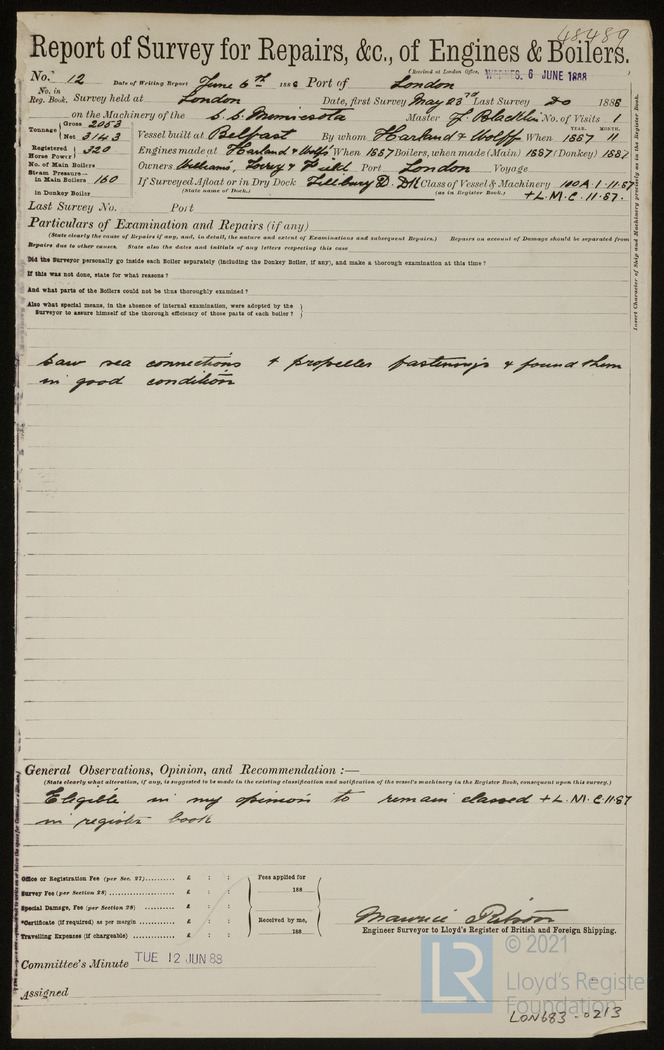 48489
Report of Survey for Repairs, &c., of Engines & Boilers.
(Received at London Office, WEDNES. 6 JUNE 1888
No. 12 Date of Writing Report June 6th 1888 Port of London
No. in Reg. Book. Survey held at London Date, first Survey May 23rd Last Survey Do 1888
on the Machinery of the S.S. Minnesota Master No. of Visits 1
YEAR. MONTH.
Tonnage Gross 2053 Net 3143 Vessel built at Belfast By whom Harland & Wolff When 1887 11
Registered Horse Power 320 Engines made at Harland & Wolff's When 1887 Boilers, when made (Main) 1887 (Donkey) 1887
No. of Main Boilers Owners Williams, Torrey & Feild Port London Voyage
Steam Pressure— in Main Boilers 160 If Surveyed Afloat or in Dry Dock Tillbury D. Dk Class of Vessel & Machinery 100A.1.11.87
(State name of Dock.) (as in Register Book.) + L.M.C. 11.87.
in Donkey Boiler
Last Survey No. Port
Particulars of Examination and Repairs (if any)
(State clearly the cause of Repairs if any, and, in detail, the nature and extent of Examinations and subsequent Repairs.) Repairs on account of Damage should be separated from
Repairs due to other causes. State also the dates and initials of any letters respecting this case
Did the Surveyor personally go inside each Boiler separately (including the Donkey Boiler, if any), and make a thorough examination at this time?
If this was not done, state for what reasons?
And what parts of the Boilers could not be thus thoroughly examined?
Also what special means, in the absence of internal examination, were adopted by the
Surveyor to assure himself of the thorough efficiency of those parts of each boiler?
Saw sea connections & propeller fastenings & found them
in good condition
Insert Character of Ship and Machinery precisely as in the Register Book.
General Observations, Opinion, and Recommendation :—
(State clearly what alteration, if any, is suggested to be made in the existing classification and notification of the vessel's machinery in the Register Book, consequent upon this survey.)
Eligible in my opinion to remain classed + L.M.C. 11.87
in register book
Office or Registration Fee (per Sec. 27).......... £ : : Fees applied for
Survey Fee (per Section 28) .................... £ : : 188
Special Damage, Fee (per Section 28) .......... £ : :
*Certificate (if required) as per margin ............ £ : : Received by me,
Travelling Expenses (if chargeable) .............. £ : : 188
Maurice
Engineer Surveyor to Lloyd's Register of British and Foreign Shipping.
Committee's Minute TUE 12 JUN 88
Assigned
LR © 2021
Lloyd's Register
Foundation
LON683-0213